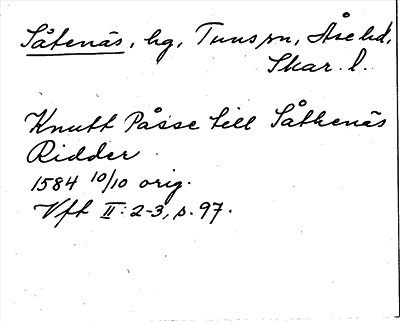 Såtenäs, hg, Tuns sn, Åse hd,
Skar. l.
Knutt Påsse till Såthenäs
Ridder
1584 10/10 orig.
Vft II:2-3, s. 97.